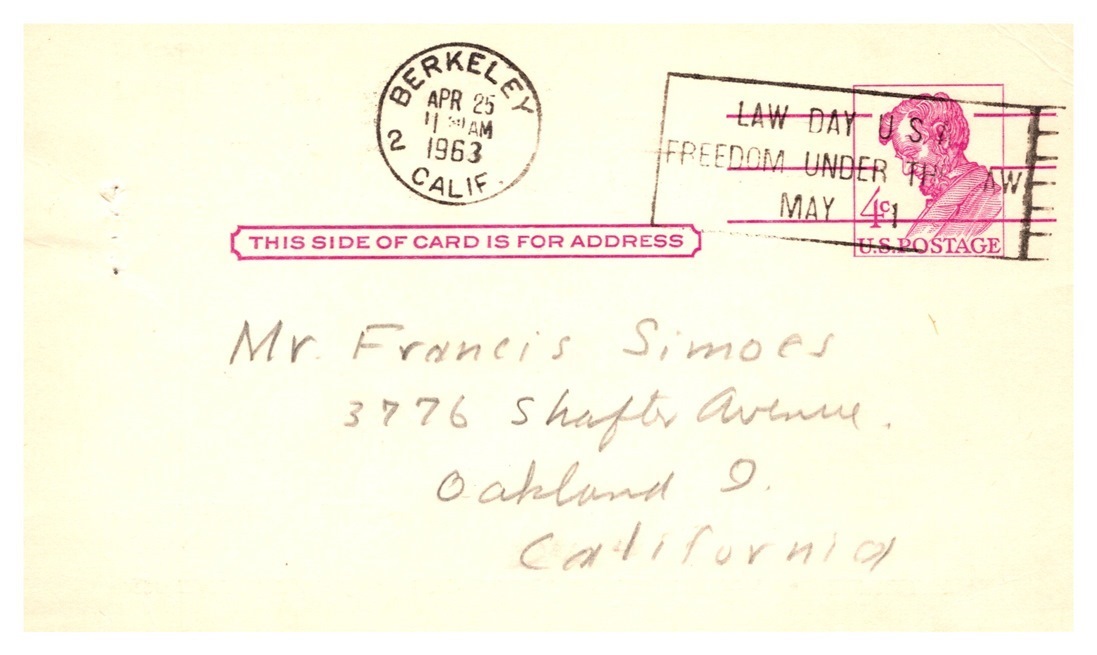 BERKELEY
APR 25
11 AM
1963
2
CALIF.
LAW DAY U S
FREEDOM UNDER THE LAW
MAY 1
4c
U.S. POSTAGE
THIS SIDE OF CARD IS FOR ADDRESS
Mr. Francis Simoes
3776 Shafter Avenue.
Oakland 9.
California